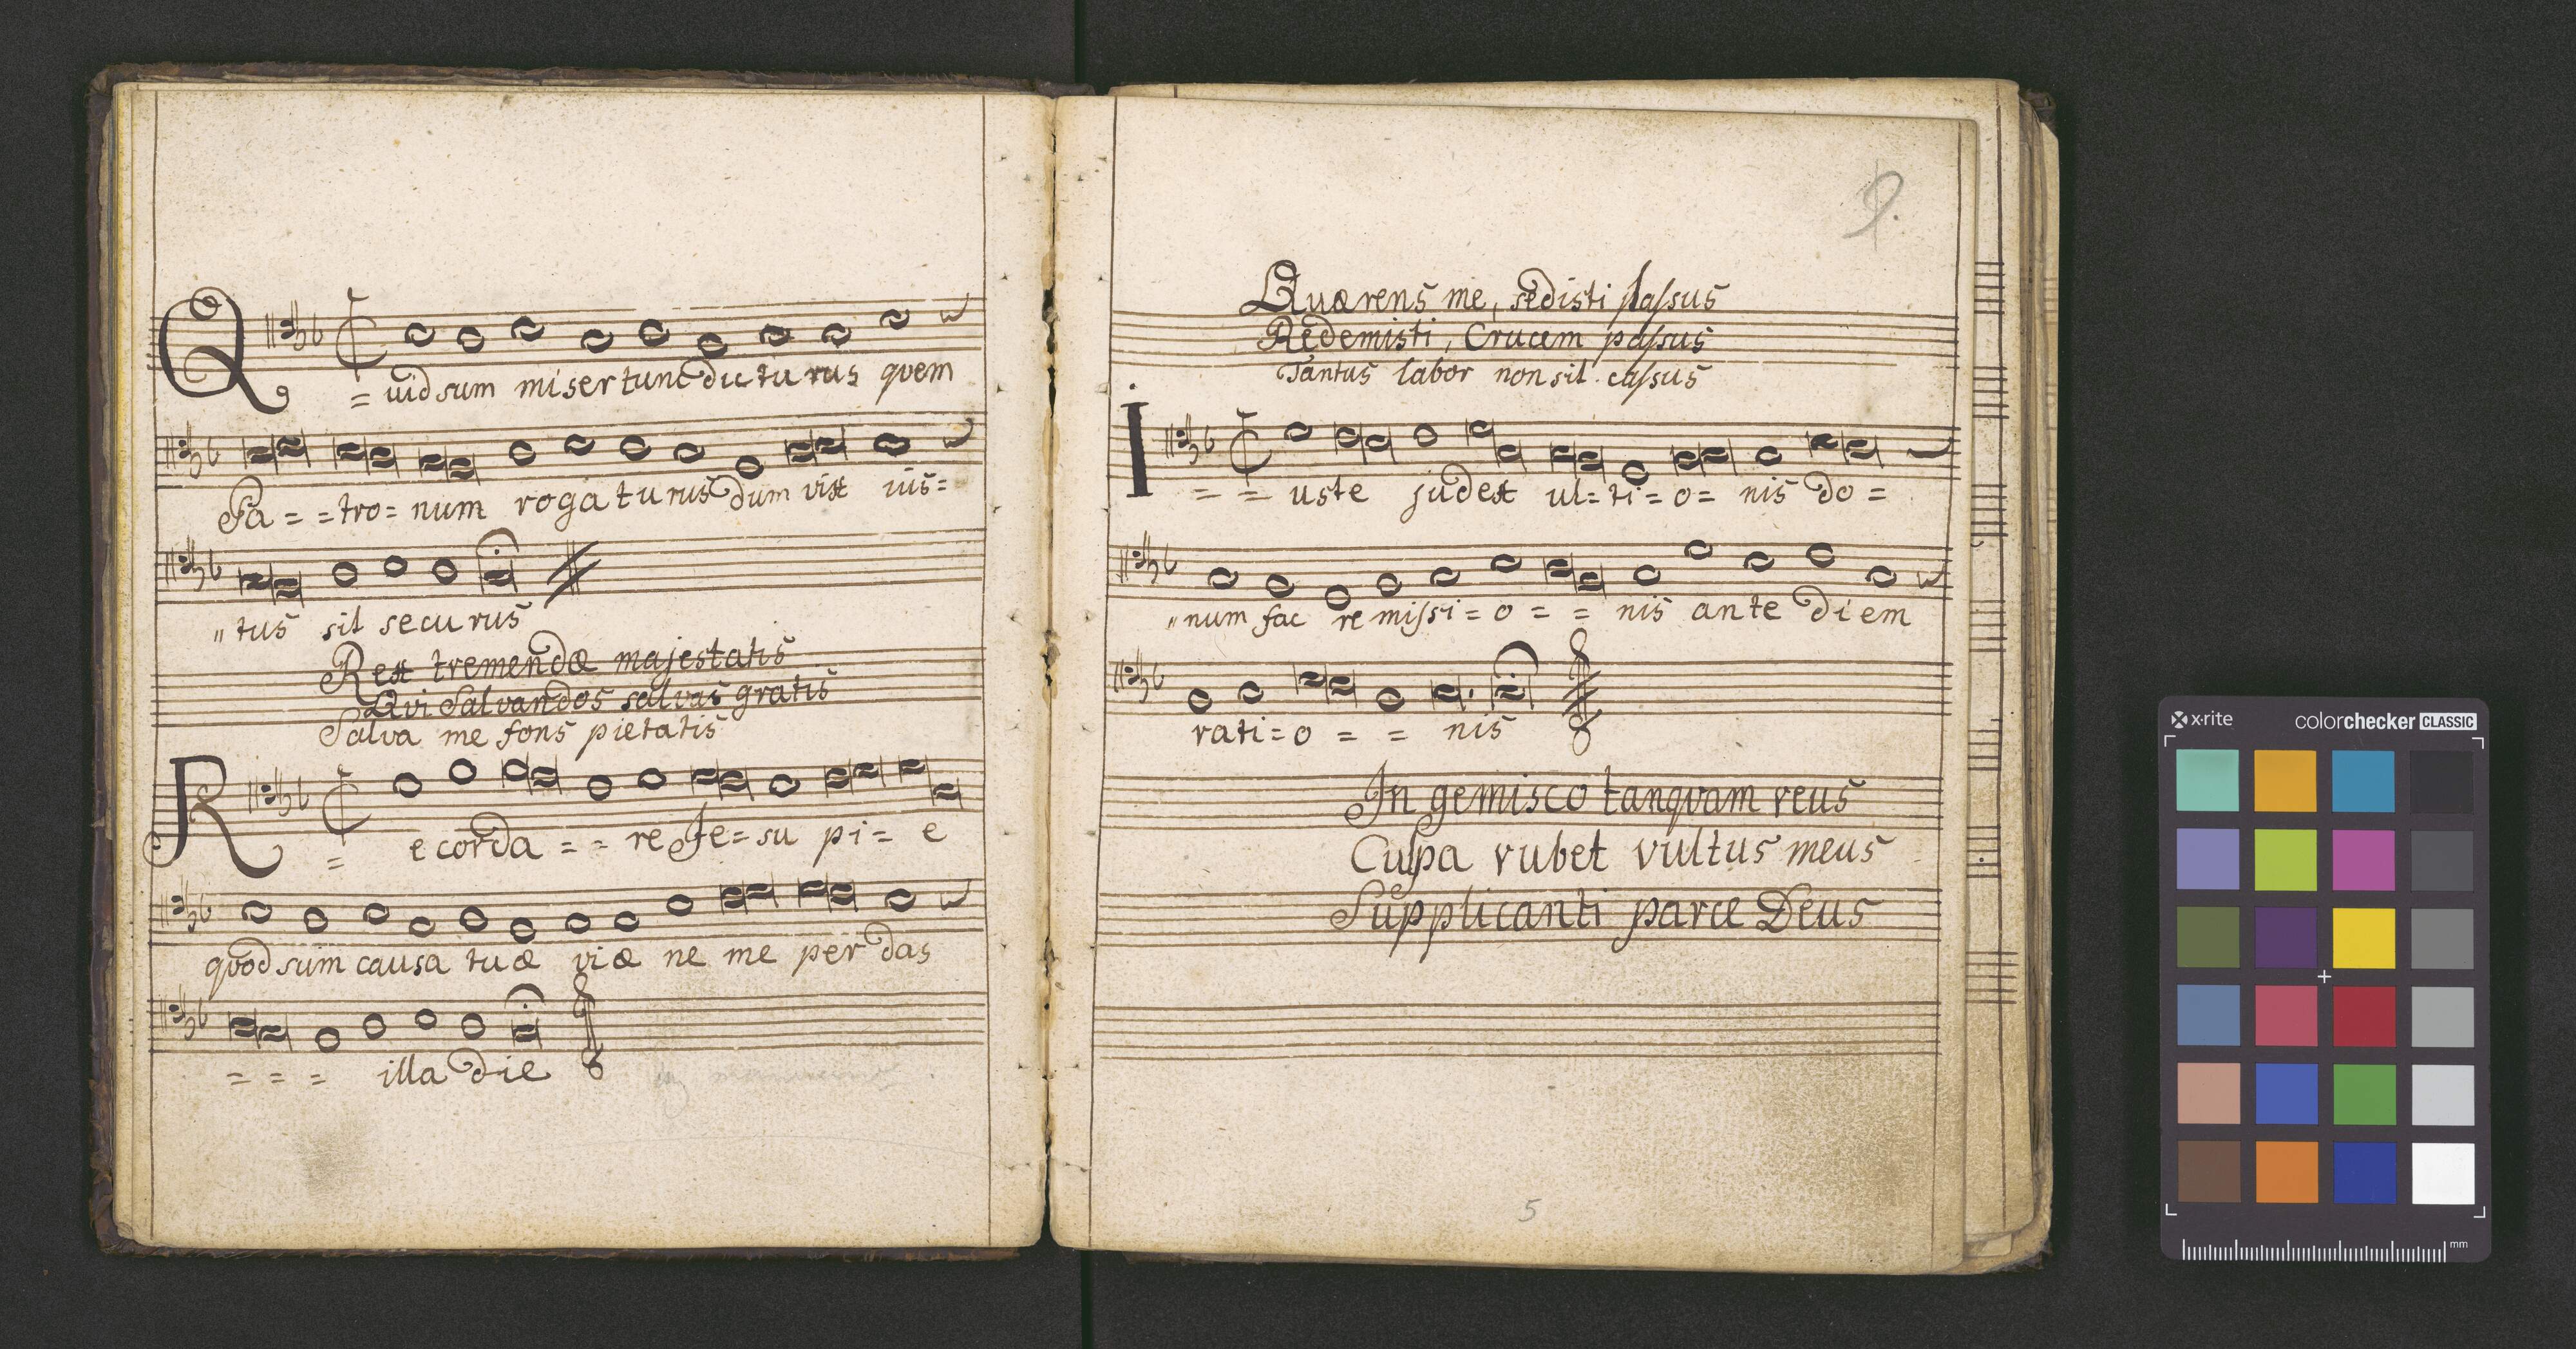 Quid sum miser tunc dicturus quem
Pa = = tro = num rogaturus dum vix ius =
" tus sit securus
Rex tremendæ majestatis
Qvi Salvandos salvas gratis
Salva me fons pietatis
R = ecorda = = re Je = su pi = e
qvod sum causa tuæ viæ ne me perdas
= = = illa die
9.
Quærens me, sedisti lassus
Redemisti, Crucem passus
Tantus labor non sit cassus
I = = uste judex ul = ti = o = nis do =
" num fac remissi = o = = nis ante diem
rati = o = = nis
In gemisco tanqvam reus
Culpa rubet vultus meus
Supplicanti parce Deus
5
x-rite
colorchecker CLASSIC
mm